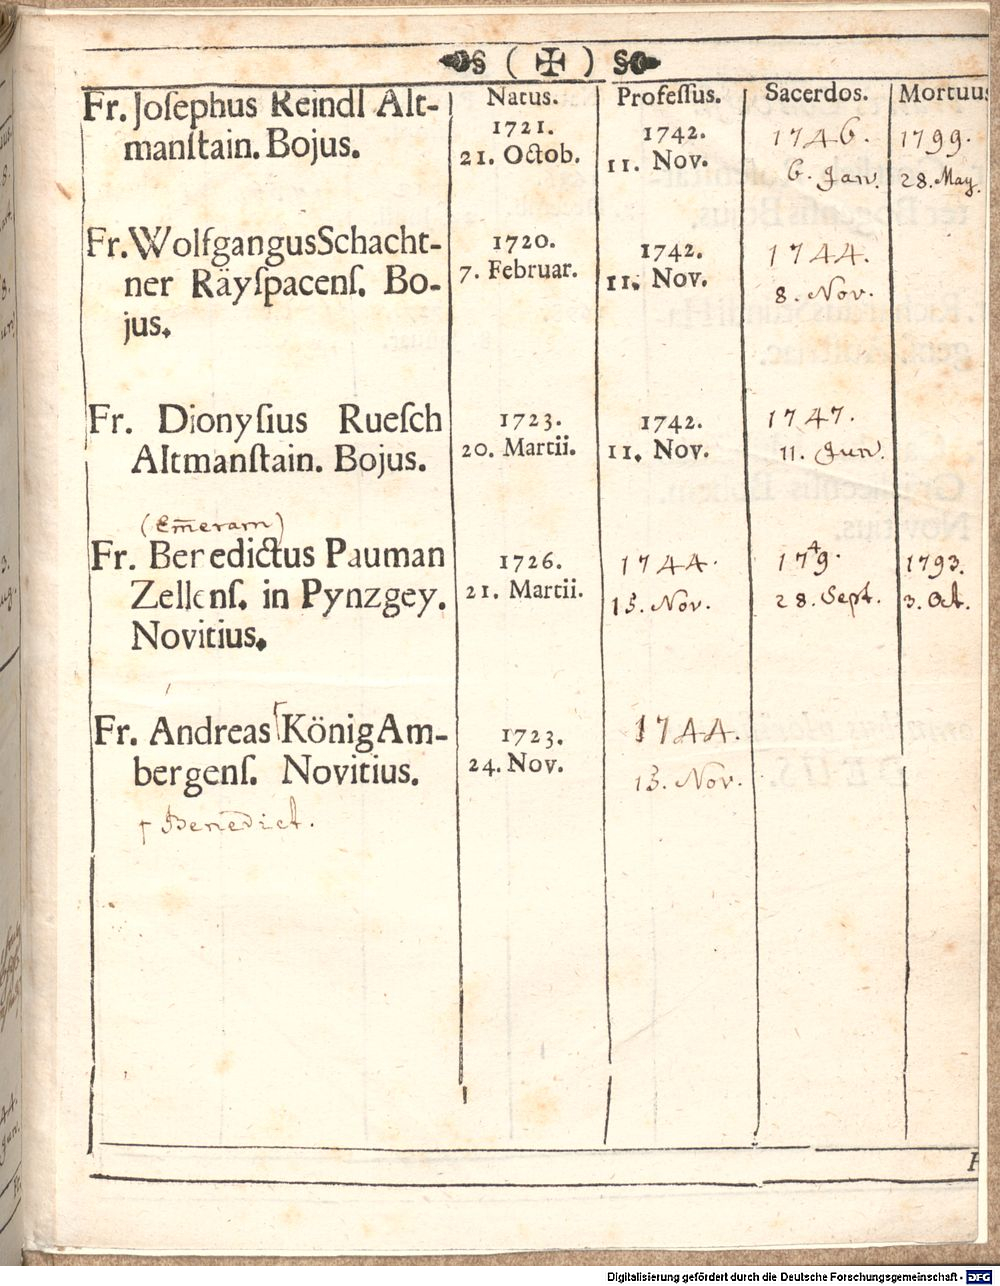 § ( ✠ ) §
Natus. Professus. Sacerdos. Mortuus
Fr. Josephus Reindl Alt-
manstain. Bojus.
1721. 1742. 1746. 1799.
21. Octob. 11. Nov. 6. Jan. 28. May.
Fr. Wolfgangus Schacht-
ner Räyspacens. Bo-
jus.
1720. 1742. 1744.
7. Februar. 11. Nov. 8. Nov.
Fr. Dionysius Ruesch
Altmanstain. Bojus.
1723. 1742. 1747.
20. Martii. 11. Nov. 11. Jun.
(Em̄eram)
Fr. Beredictus Pauman
Zellens. in Pynzgey.
Novitius.
1726. 1744. 1749. 1793.
21. Martii. 13. Nov. 28. Sept. 3. Oct.
Fr. Andreas König Am-
bergens. Novitius.
Benedict.
1723. 1744.
24. Nov. 13. Nov.
Digitalisierung gefördert durch die Deutsche Forschungsgemeinschaft - DFG